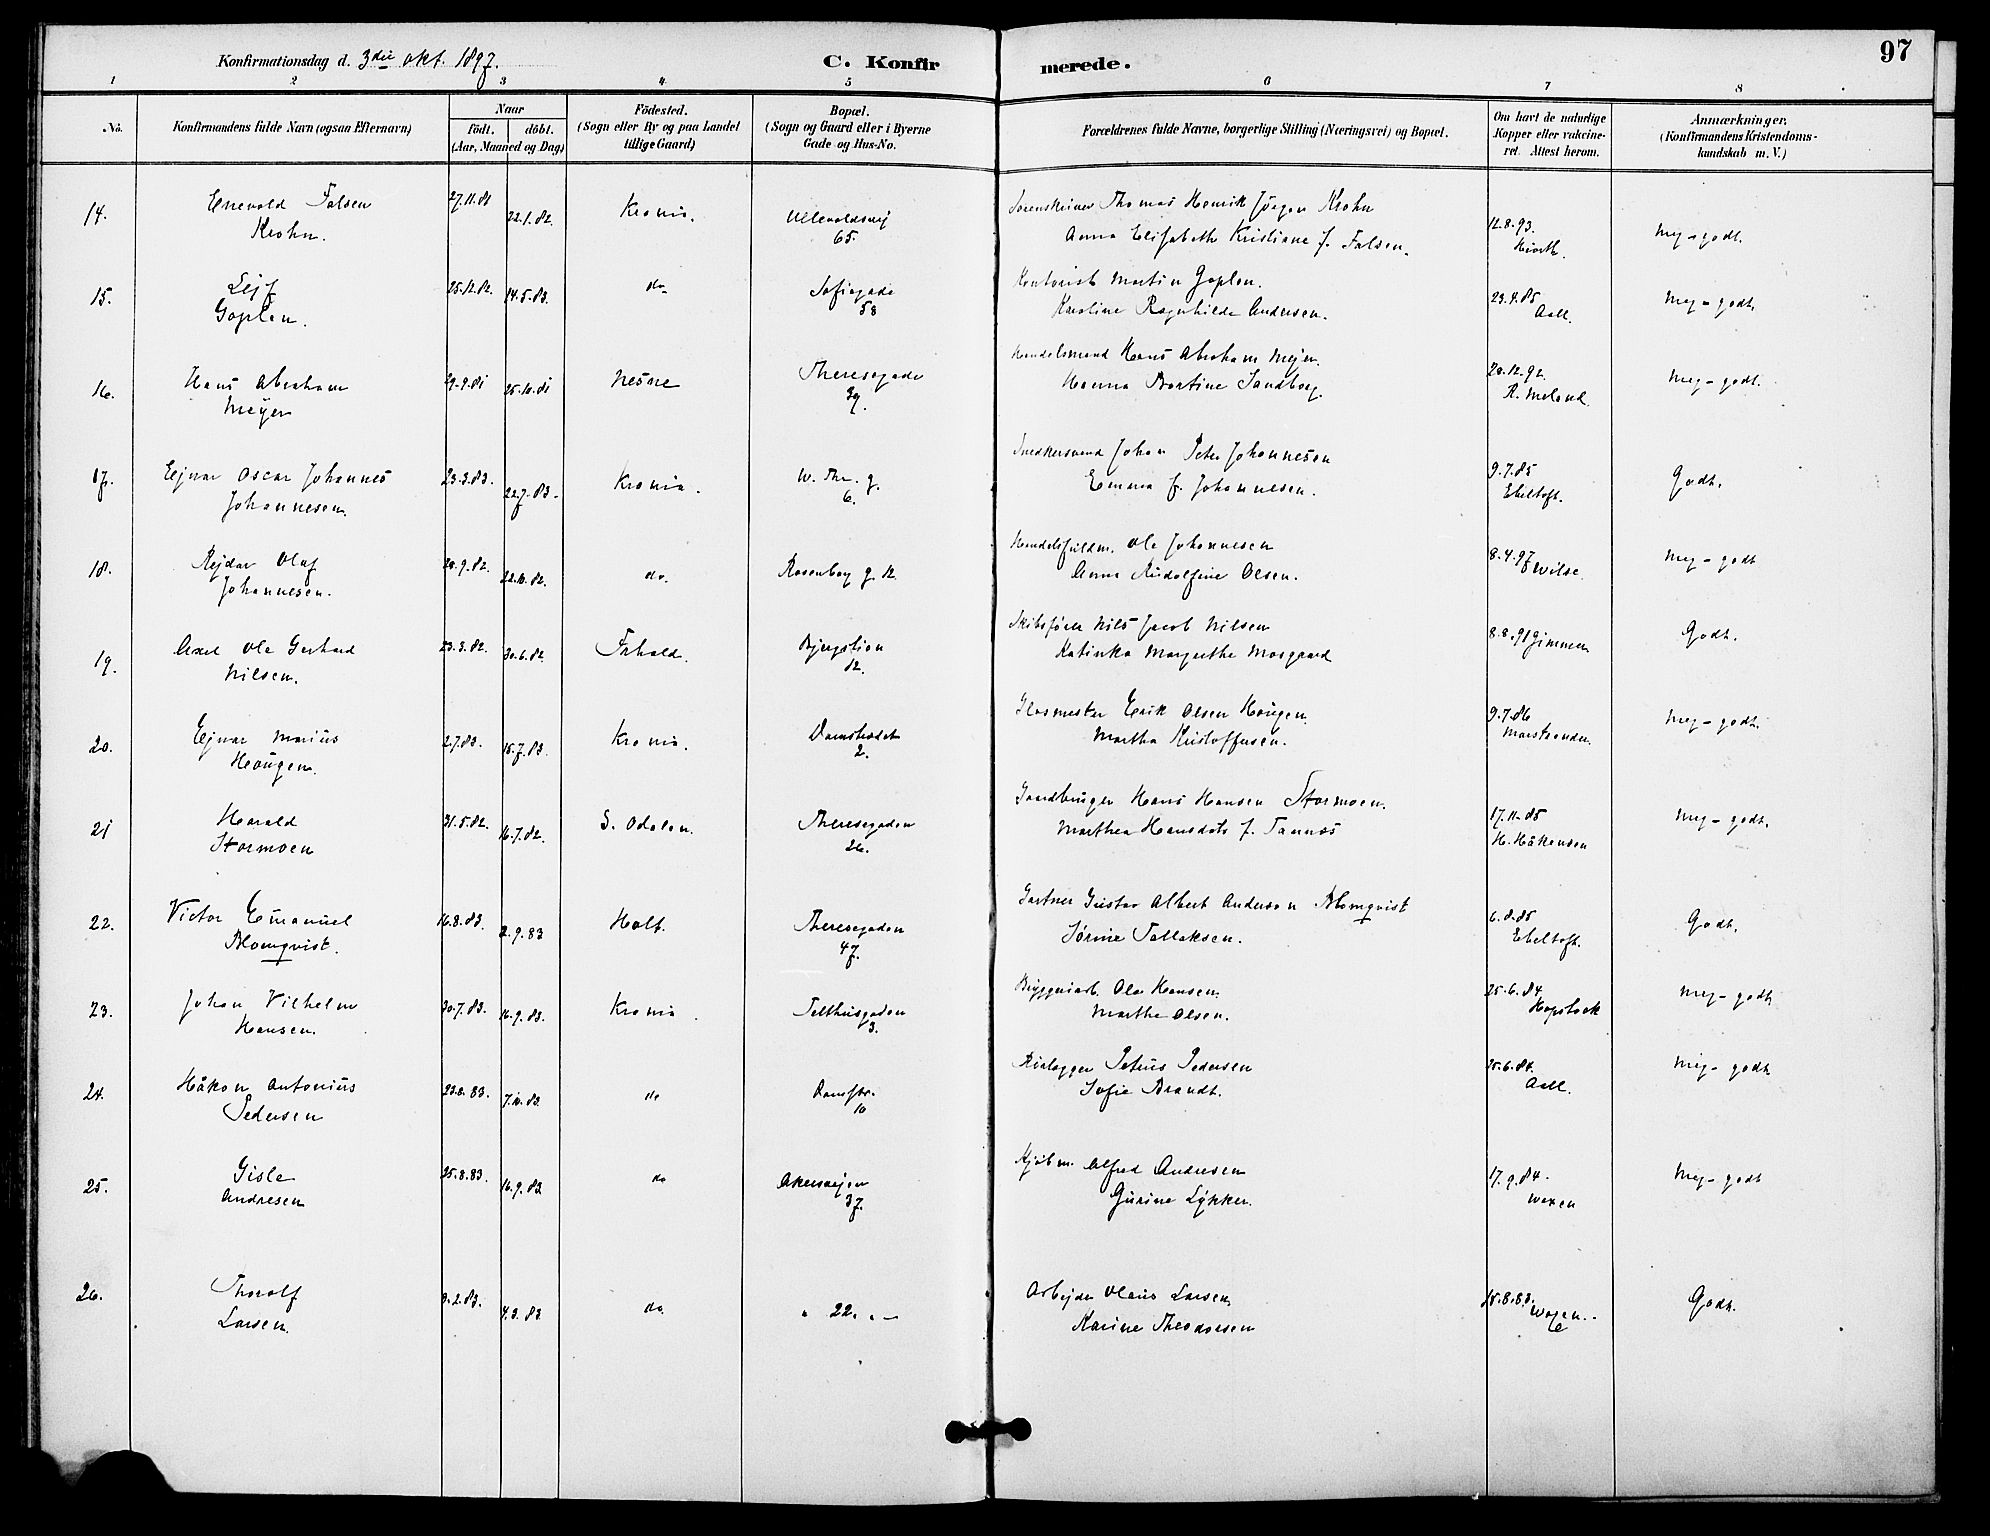 Konfirmationsdag d. 3die Okt. 1897.
C. Konfirmerede.
97
1 2 3 4 5 6 7 8
No.
Konfirmandens fulde Navn (ogsaa Efternavn)
Naar
födt. döbt.
(Aar, Maaned og Dag)
Födested.
(Sogn eller By og paa Landet
tillige Gaard)
Bopæl.
(Sogn og Gaard eller i Byerne
Gade og Hus-No.
Forældrenes fulde Navne, borgerlige Stilling (Næringsvei) og Bopæl.
Om havt de naturlige
Kopper eller vakcine-
ret. Attest herom.
Anmærkninger.
(Konfirmandens Kristendoms-
kundskab m. V.)
14. Enevold Falsen 27.11.81 22.1.82. Kr.ania. Ullevoldsvej Sorenskriver Thomas Henrik Jörgen Krohn 12.8.93. Meg-godt.
Krohn. 65. Anna Elisabeth Kristiane f. Falsen. Hiorth.
15. Lejf 25.12.82. 14.5.83. do Sofiegade Kontorist Martin Goplen. 23.9.85 Meg-godt.
Goplen. 58 Karoline Ragnhilde Andersen. Aall.
16. Hans Abraham 29.9.81 25.10.81 Nesne Theresegade Handelsmand Hans Abraham Mejer. 20.12.92. Meg-godt.
Meyer 39. Hanna Bertine Sandberg. R. Meland.
17. Ejnar Oscar Johannes 23.3.83. 22.7.83. Kr.ania. W. Thr. g. Snedkersvend Johan Peter Johannesen 9.7.85 Godt.
Johannesen. 6. Emma f. Johannesen. Ebeltoft.
18. Rejdar Olaf 20.9.82. 22.10.82. do. Rosenborg g. 12. Handelsfuldm. Ole Johannesen 8.4.97 Wilse. Meg-godt
Johannesen. Anna Rudolfine Olsen.
19. Axel Ole Gerhard 23.3.82. 30.6.82. Fahald. Bjergstien Skibsförer Nils Jacob Nilsen 8.8.91 Gimmen Godt.
Nilsen. 12. Katinka Margrethe Mosgaard
20. Ejnar Marius 2.7.83. 15.7.83. Kr.ania. Damstredet Glasmester Erik Olsen Haugen. 9.7.86 Meg-godt.
Haugen. 2. Martha Kristoffersen. Marstrander.
21 Harald 31.5.82. 16.7.82. S. Odalen. Theresegaden Gaardbruger Hans Hansen Stormoen. 17.11.85 Meg-godt.
Stormoen 26. Marthea Hansdatr f. Tannæs H. Håkensen
22. Victor Emanuel 16.8.83. 2.9.83 Holt. Theresegaden Gartner Gustav Albert Anderson Blomqvist 6.8.85 Godt.
Blomqvist. 47. Sørine Tallaksen. Ebeltoft.
23. Johan Vilhelm 30.7.83. 16.9.83. Kr.ania. Telthusgaden Bryggeriarb. Ole Hansen. 25.6.84. Meg-godt
Hansen. 3. Marthe Olsen. Hopstock
24. Håkon Antonius 23.8.83. 7.10.83. do Damstr. Rørlægger Petrus Pedersen 25.6.84. Meg-godt
Pedersen 10 Sofie Brandt. Aall.
25. Gisle 25.8.83. 16.9.83. do Akersvejen Kjøbm. Alfred Andresen 17.9.84. Meg-godt
Andresen 37. Gurine Lykker. Wexen
26. Thoralf 9.2.83. 4.3.83 do " 22. " - Arbejder Olaus Larsen. 15.8.83. Wexen. Godt.
Larsen. Karine Theodorsen